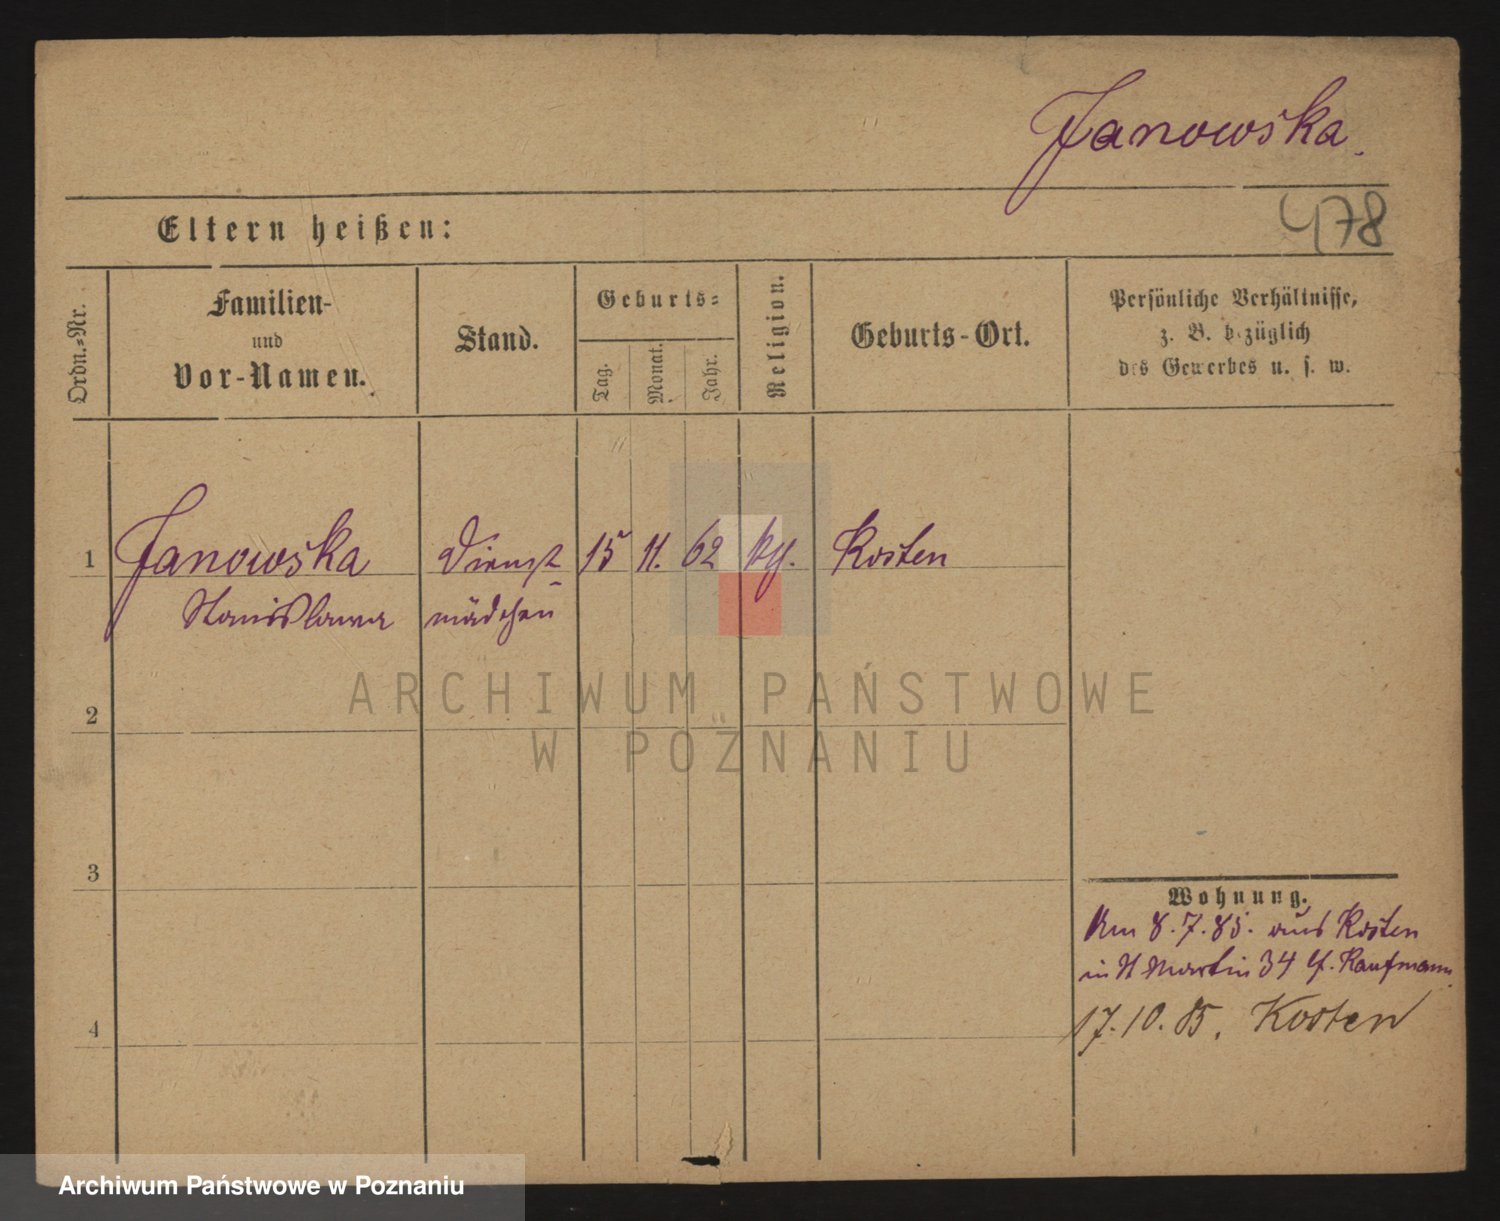 Janowska.
478
Eltern heißen:
Ordn.-Nr.
Familien-
und
Vor-Namen.
Stand.
Geburts-
Tag.
Monat.
Jahr.
Religion.
Geburts-Ort.
Persönliche Verhältnisse,
z. B. bezüglich
des Gewerbes u. s. w.
1
Janowska
Stanislawa
Dienst-
mädchen
15
11.
62
Kosten
ARCHIWUM PAŃSTWOWE
W POZNANIU
2
3
4
Wohnung.
8.7.85. aus Kosten
in St Martin 34 Kaufmann
17.10.85. Kosten
Archiwum Państwowe w Poznaniu